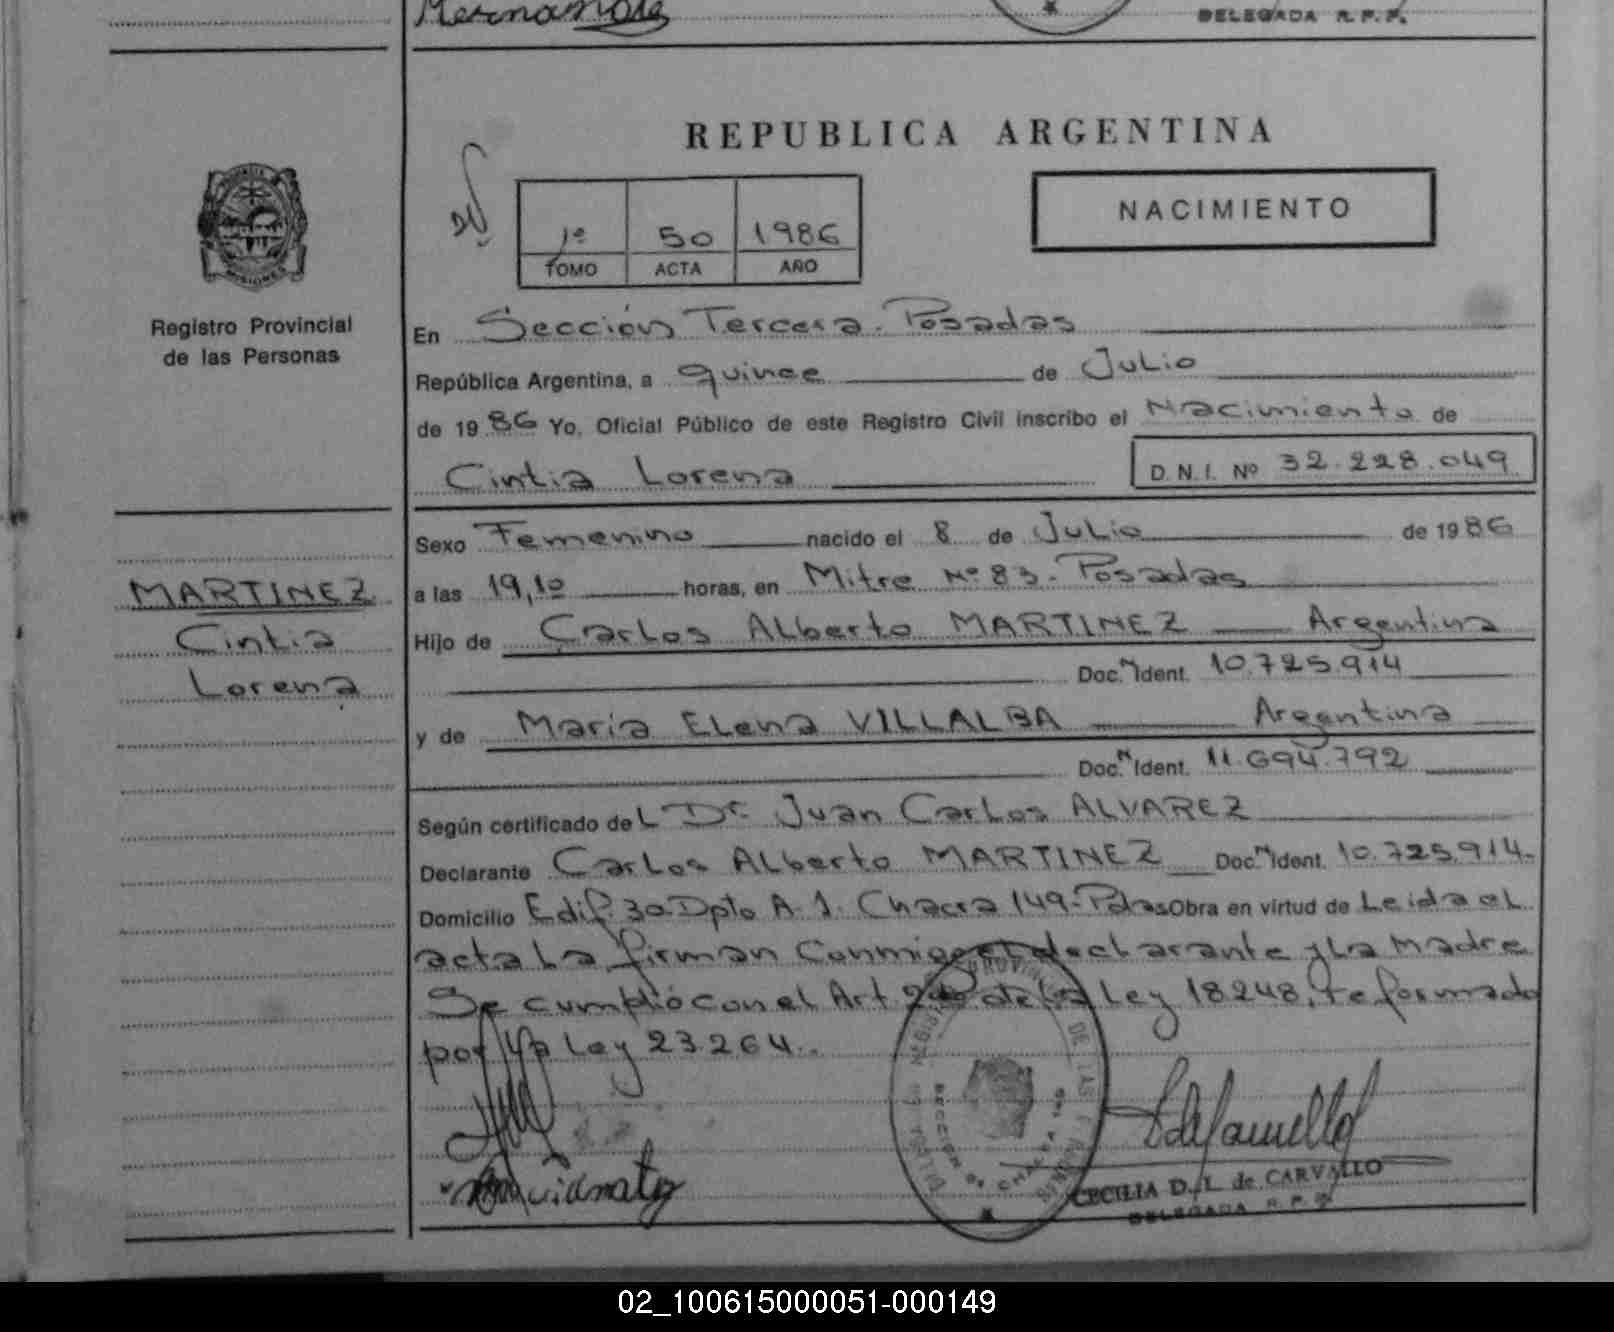 Hernandez
DELEGADA R.P.P.
REPUBLICA ARGENTINA
NACIMIENTO
1º 50 1986
TOMO ACTA AÑO
Registro Provincial
de las Personas
En Sección Tercera. Posadas
República Argentina, a quince de Julio
de 1986 Yo, Oficial Público de este Registro Civil inscribo el Nacimiento de
Cintia Lorena D.N.I. Nº 32.228.049
Sexo Femenino nacido el 8 de Julio de 1986
MARTINEZ
Cintia
Lorena
a las 19,10 horas, en Mitre Nº 83. Posadas
Hijo de Carlos Alberto MARTINEZ Argentina
Doc. N Ident. 10.725.914
y de María Elena VILLALBA Argentina
Doc. N Ident. 11.694.792
Según certificado del Dr. Juan Carlos ALVAREZ
Declarante Carlos Alberto MARTINEZ Doc. N Ident. 10.725.914.
Domicilio Edif. 30 Dpto A. 1. Chacra 149-Pdas Obra en virtud de Leida el
acta la firman conmigo el declarante y la madre
Se cumplió con el Art. de la Ley 18248, reformado
por la Ley 23264.
PROVINCIAL DE LAS PERSONAS
SECCION
CECILIA D. L. de CARVALLO
DELEGADA R.P.P.
02_100615000051-000149